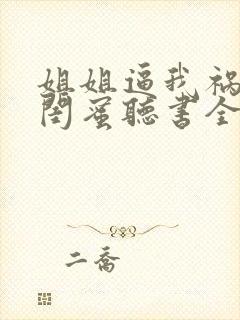 姐姐逼我祸
闺蜜聽书全
二喬